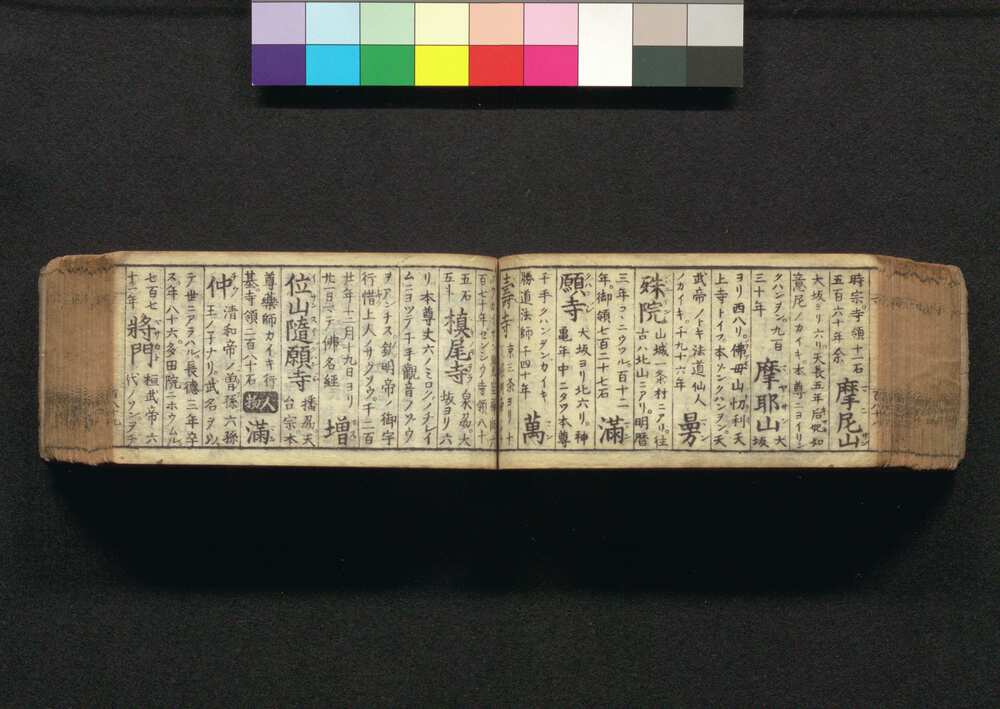 時宗寺領十一石
五百六十年余 摩尼山
大坂ヨリ六リ天長五年
意尼ノカイキ本尊ニヨイリン
クハンヲン九百 摩耶山 大坂
三十年
ヨリ西八リ佛母山忉利天
上寺トイフ本ソンクハンヲン天
武帝ノトキ法道仙人
ノカイキ千九十六年 曼
殊院 山城一条村ニアリ往
古ハ北山ニアリ明暦
三年コヽニウツル百十二
年御領七百二十七石 滿
願寺 大坂ヨリ北六リ神
亀年中ニタツ本尊
千手クハンヲンカイキ
勝道法師千四十年 萬
壽寺 京三条ヨリ十
百七十年ゼンシウ寺領八十
五石 槙尾寺 泉刕大
五十 坂ヨリ六
リ本尊丈六ノミロクノチレイ
ムニヨツテ千手觀音ヲツウ
ヲアンチス欽明帝ノ御宇
行惜上人ノサクソウ千二百
廿年十二月十九日ヨリ
廿一日マテ佛名経 増
位山隨願寺 播刕天
台宗本
尊藥師カイキ行
基寺領二百八十石 人物 滿
仲 清和帝ノ曽孫六孫
王ノ子ナリ武名ヲ以
テ世ニアラハル長德三年卒
ス年八十六多田院ニホウムル
七百七 將門 桓武帝六
十二年 代ノウンヲチ